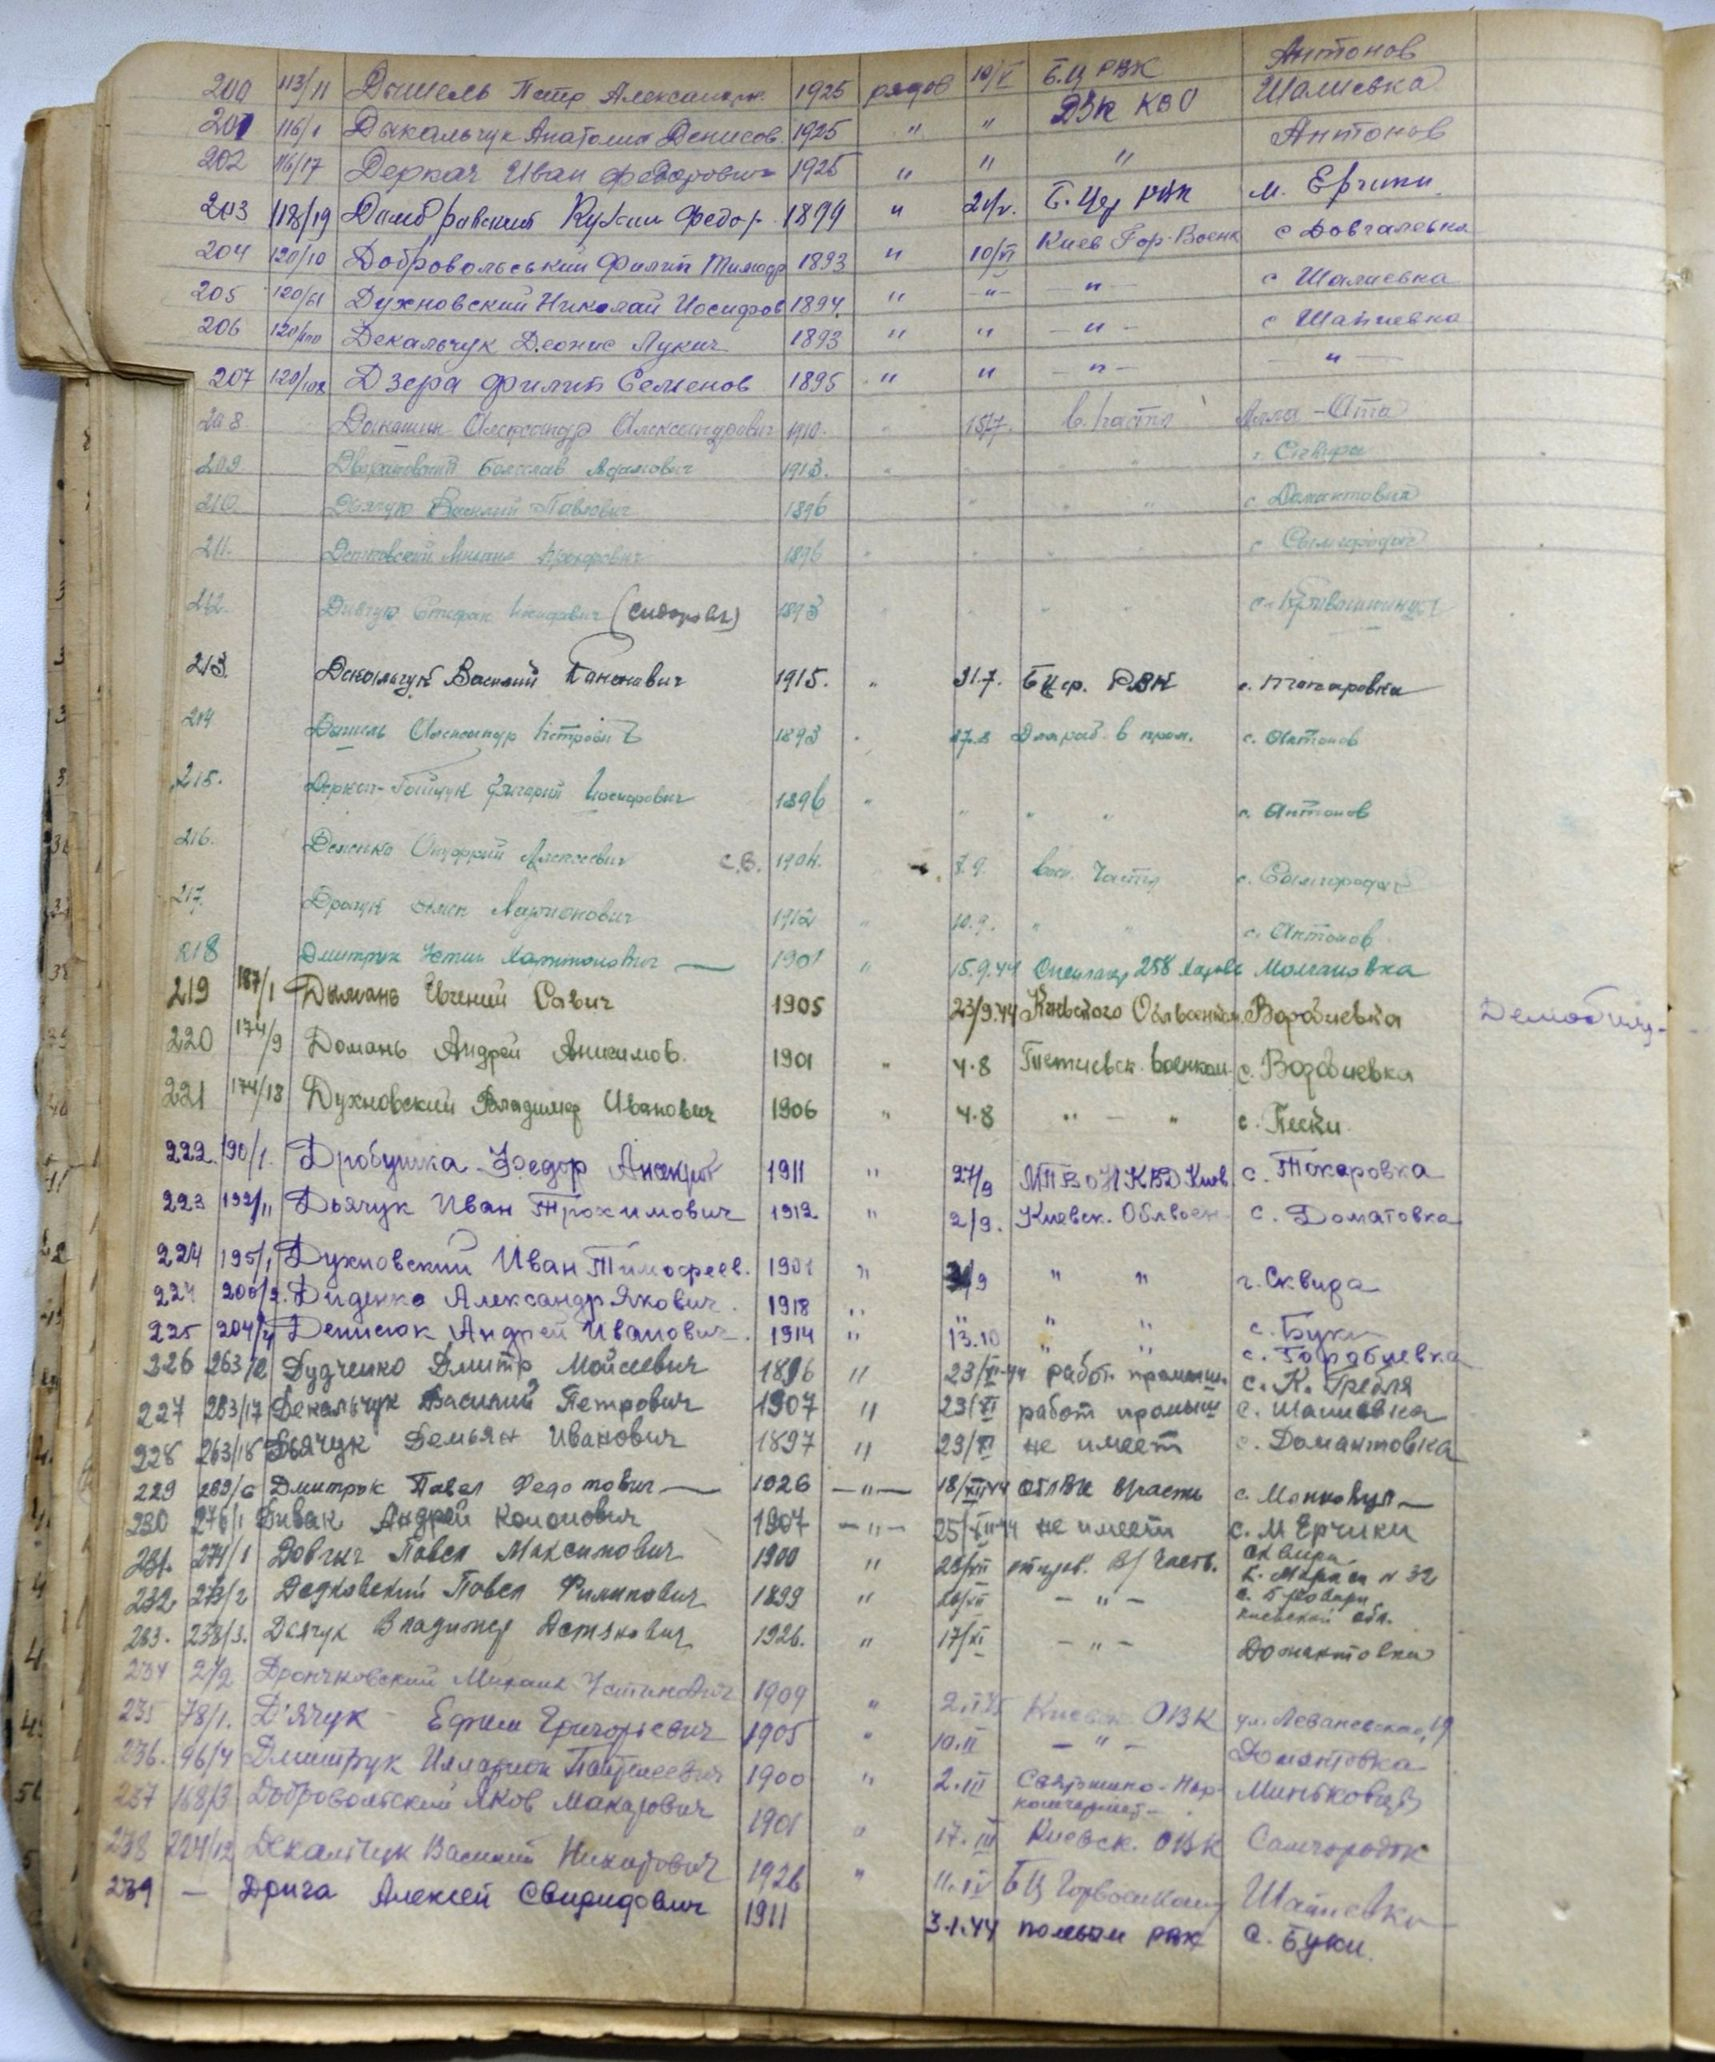 200 113/11 Дышель Петр Александр. 1925 рядов 10/V Б.Ц РВК Антонов
201 116/1 Дыкальчук Анатолий Денисов. 1925 " " РВК КВО Шалиевка
202 116/17 Деркач Иван Федорович 1925 " " " Антонов
203 118/19 Домбровский Федор. 1899 " 21/V. Б.Цер РВК м. Ерчики
204 120/10 Добровольський Филип 1893 " 10/VI Киев Гор. Военк с Довгалевка
205 120/61 Духновский Николай Иосифов 1894. " -"- -"- с Шалиевка
206 Декальчук Деонис Лукич 1893 " " -"- с Шапиевка
207 120/108 Дзера Филип Семенов 1895 " " -"- "
208 Александр Александрович 1910. " 15/7. в. части Алла-Ата
209 Болеслав Адамович 1913. " " " г. Сквира
210 Дьячук Василий Павлович 1896 " " " с Домантовка
211. 1896 " " " с Самгородок
212. Дьячук Стефан (Сидоров) 1893 " " "
213. Декальчук Василий 1915. " 31.7. Б Цер. РВК с. Токаровка
214 Дышель Александр Петрович 1893 " 17.8 Для раб. в пром. с. Антонов
215. Григорий Иосифович 1896 " " " " с. Антонов
216. Онуфрий Алексеевич С.В. 1904. " 8.9. воен. Части с. Самгородок
217. Ларионович 1912 " 10.9. " " с. Антонов
218 Дмитрук Устин Харитонович — 1901 " 15.9.44 258 Молчановка
219 187/1 Дымань Евгений Савич 1905 23/9.44 Киевского Облвоенком. Воробиевка Демобилиз-
220 174/9 Домань Андрей Анисимов. 1901 " 4.8 Тетиевск. Военком с. Воробиевка
221 174/18 Духновский Владимир Иванович 1906 " 4.8 " — " с. Пески.
222. 190/1. Дробушка Федор 1911 " 27/9 МПВО НКВД Киев с. Токаровка
223 192/11 Дьячук Иван Трохимович 1912 " 2/9. Киевск. Облвоен с. Доматовка
224 195/1 Духновский Иван Тимофеев. 1901 " /9 " " г. Сквира
224 200/2. Диденко Александр Якович. 1918 " " " " с. Буки
225 204/4 Денисюк Андрей Иванович. 1914 " 13.10 " " с. Горобиевка
226 263/12 Дудченко Дмитр Мойсеевич 1896 " 23/XI-44 работ. промыш. с. К. Гребля
227 263/17 Декальчук Василий Петрович 1907 " 23/XI работ промыш с. Шапиевка
228 263/18 Дьячук Демьян Иванович 1897 " 23/XI не имеет с. Домантовка
229 269/6 Дмитрюк Павел Федотович — 1926 —"— 18/XII44 облВК в/часть с.
230 276/1 Дивак Андрей Кононович 1907 —"— 25/XII44 не имеет с. М Ерчики
231. 274/1 Довгич Павел Максимович 1900 " 23/XII В/Часть. Сквира К. Маркса N 32
232 273/2 Дедковский Павел Филипович 1899 " 20/XII -"- с. Бровари Киевской обл.
233. 238/3. Дьячук Владимир Демянович 1926. " 17/XI -"- Домантовка
234 2/2 Дрончковский Михаил Устинович 1909 " 2. Киевск ОВК ул. Леваневского, 19
235 78/1. Д'ячук Ефим Григорьевич 1905 " 10.II -"- Домантовка
236. 96/4 Дмитрук Илларион 1900 " 2.III Миньковцы
237 168/3 Добровольский Яков Макарович 1901 " 17.III Киевск. ОВК Самгородок
238 224/12 Декальчук Василий 1926 " 11.IV БЦ Горвоенкомат Шапиевка
239 — Дрига Алексей Свиридович 1911 3.1.44 РВК с. Буки.